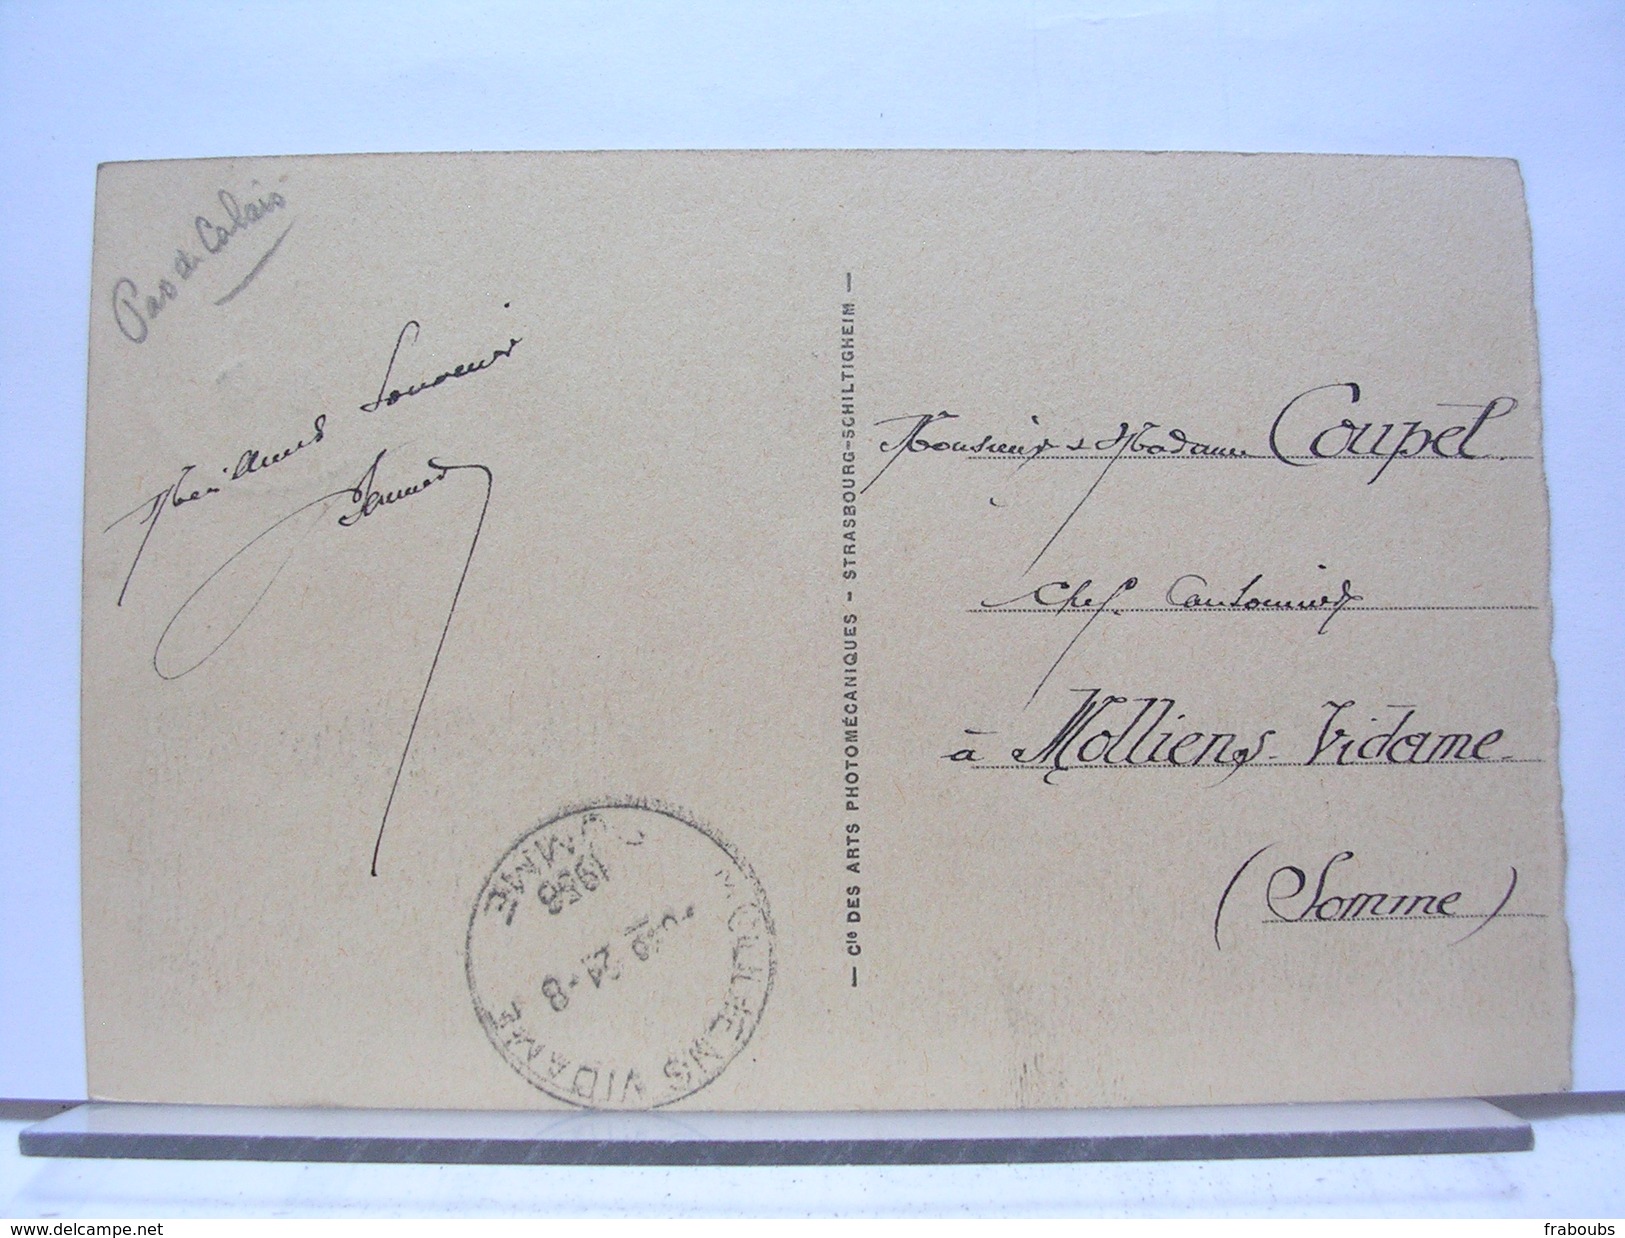 Pas de Calais
Meilleurs Souvenirs
— Cie DES ARTS PHOTOMÉCANIQUES - STRASBOURG-SCHILTIGHEIM —
Monsieur & Madame Coupel
Chef Cantonnier
à Molliens-Vidame
(Somme)
MOLLIENS VIDAME
SOMME
24 -8
1938
www.delcampe.net
fraboubs